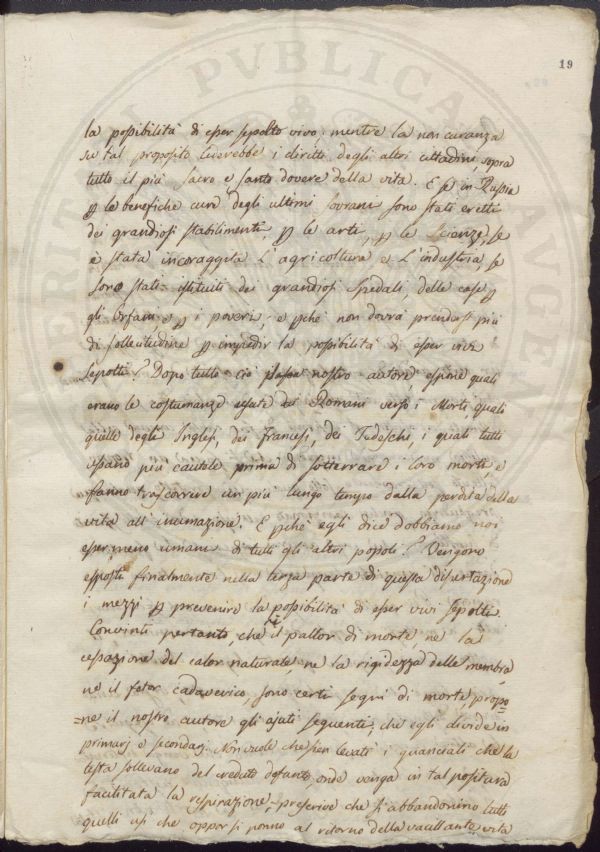 19
la possibilità di esser sepolto vivo; mentre la non curanza
su tal proposito leverebbe i diritti degli altri cittadini, sopra
tutto il più sacro e santo dovere della vita. E se in Russia
p le benefiche cure degli ultimi sovrani sono stati eretti
dei grandiosi stabilimenti, p le arti, p le Scienze, se
è stata incoraggita l'agricoltura e l'industria, se
sono stati istituiti dei grandiosi Spedali, delle case p
gli Orfani e p i poveri; e pchè non dovrà prendersi più
di sollecitudine p impedir la possibilità di esser vivi
sepolti? Dopo tutto ciò nostro autore, espone quali
erano le costumanze usate dai Romani verso i Morti, quali
quelle degl'Inglesi, dei Francesi, dei Tedeschi, i quali tutti
usano più cautele prima di sotterrare i loro morti, e
fanno trascorrere un più lungo tempo dalla perdita della
vita all'inumazione. E pchè egli dice dobbiamo noi
esser meno umani di tutti gli altri popoli? Vengono
esposti finalmente nella terza parte di questa dissertazione
i mezzi p prevenire la possibilità di esser vivi sepolti.
Convinti pertanto, che il pallor di morte, ne la
cessazione del calor naturale, ne la rigidezza delle membra
ne il fetor cadaverico, sono certi segni di morte, propo=
=ne il nostro autore gli ajuti seguenti, che egli divide in
primarj e secondarj. Non vuole che sien levati i guanciali che la
testa sollevano del creduto defonto, onde venga in tal positura
facilitata la respirazione, prescrive che si abbandonino tutti
quelli usi che oppor si ponno al ritorno della vacillante vita